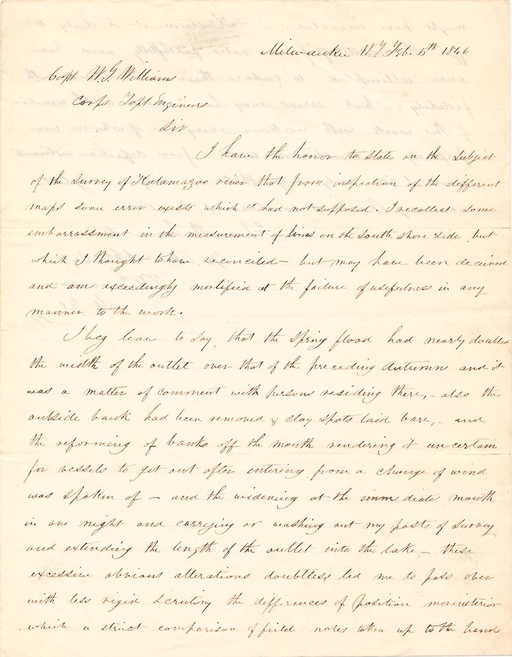 Milwaukie W.T. Feb. 5th 1846
Capt W.G. Williams
Corps Topl Engineers
Sir
I have the honor to state on the subject
of the survey of Kalamazoo river that from inspection of the different
maps some error exists which I had not supposed. I recollect some
embarrassment in the measurement of lines on the South shore side, but
which I thought to have reconciled – but may have been deceived
and am exceedingly mortified at the failure of usefulness in any
manner to the work.
I beg leave to say, that the spring flood had nearly doubled
the width of the outlet over that of the preceding Autumn and it
was a matter of comment with persons residing there, – also the
outside bank had been removed & clay spots laid bare, – and
the reforming of banks off the mouth rendering it uncertain
for vessels to get out after entering from a change of wind
was spoken of – and the widening at the immediate mouth
in one night and carrying or washing out my posts of survey
and extending the length of the outlet into the lake – these
excessive obvious alterations doubtless led me to pass over
with less rigid scrutiny the differences of position
which a strict comparison of field notes taken up to the bend